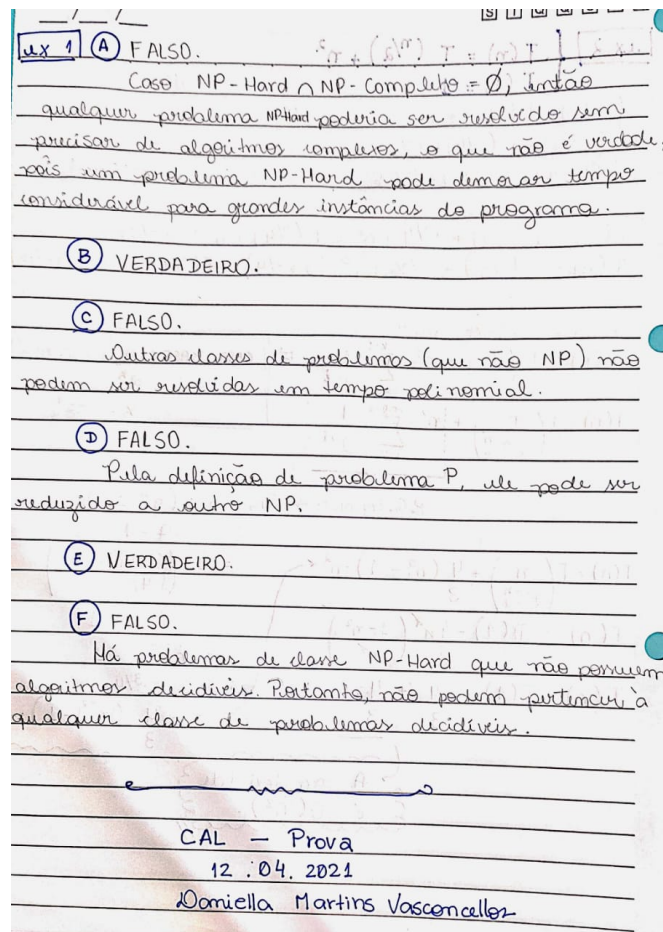 ex 1 A FALSO.
Caso NP-Hard ∩ NP-Completo = Ø, então
qualquer problema NP-Hard poderia ser resolvido sem
precisar de algoritmos complexos, o que não é verdade,
pois um problema NP-Hard pode demorar tempo
considerável para grandes instâncias do programa.
B VERDADEIRO.
C FALSO.
Outras classes de problemas (que não NP) não
podem ser resolvidas em tempo polinomial.
D FALSO.
Pela definição de problema P, ele pode ser
reduzido a outro NP.
E VERDADEIRO.
F FALSO.
Há problemas de classe NP-Hard que não possuem
algoritmos decidíveis. Portanto, não podem pertencer à
qualquer classe de problemas decidíveis.
CAL - Prova
12.04.2021
Daniella Martins Vasconcellos